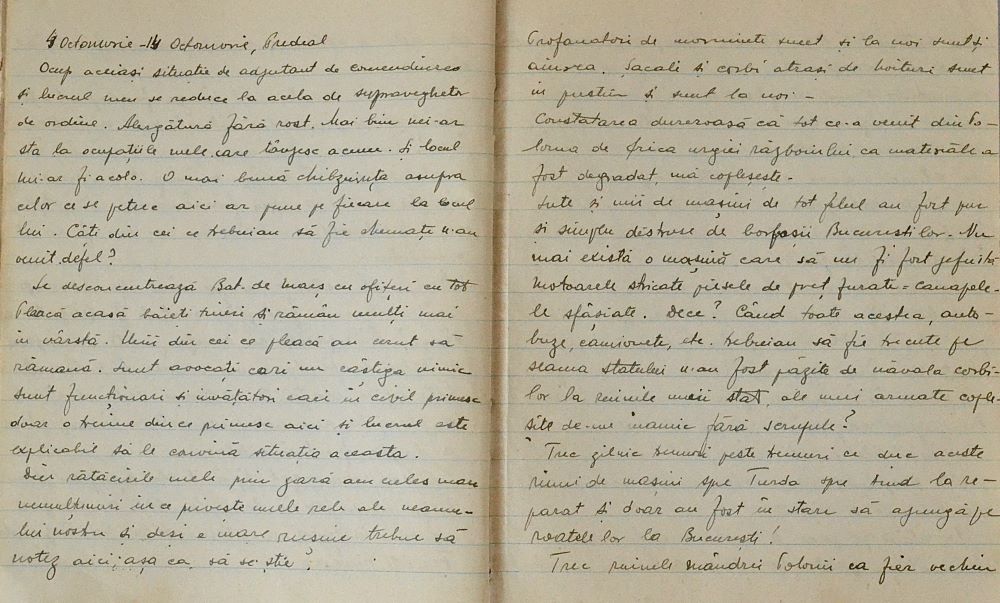 4 Octomvrie - 14 Octomvrie, Predeal
Ocup aceiași situație de adjutant de comenduirea
și lucrul meu se reduce la acela de supraveghetor
de ordine. Alergătură fără rost. Mai bine mi-ar
sta la ocupațiile mele care lâncesc acum. Și locul
mi-ar fi acolo. O mai bună chibzuința asupra
celor ce se petrec aici ar pune pe fiecare la locul
lui. Câți din cei ce trebuiau să fie chemați n-au
venit defel?
Se desconcentrează Bat. de marș cu ofițeri cu tot
Pleacă acasă băieți tineri și rămân mulți mai
în vârstă. Unii din cei ce pleacă au cerut să
rămână. Sunt avocați cari nu câștiga nimic
sunt funcționari și invățători cari în civil primesc
doar o treime din ce primesc aici și lucrul este
explicabil să le convină situația aceasta.
Din rătăcirile mele prin gară am cules mari
nemulțumiri in ce privește unele rele ale neamu-
lui nostru și deși e mare rușine trebue să
notez aici, așa ca să se știe.
Profanatori de morminte sunt și la noi sunt și
aiurea. Șacali și corbi atrași de hoituri sunt
in pustiu și sunt la noi -
Constatarea dureroasă că tot ce-a venit din Po-
lonia de frica urgiei războiului ca materiale a
fost degradat, mă copleșește -
Sute și mii de mașini de tot felul au fost pur
și simplu distruse de borfașii Bucureștilor. Nu
mai există o mașină care să nu fi fost jefuită
motoarele stricate piesele de preț furate - canapele-
le sfâșiate. Dece? Când toate acestea, auto-
buze, camionete, etc. trebuiau să fie trecute pe
seama statului n-au fost păzite de năvala corbi-
lor la ruinile unui stat, ale unei armate cople-
șite de-un inamic fără scrupule?
Trec zilnic trenuri peste trenuri ce duc aceste
ruini de mașini spre Turda spre a fi
parat și doar au fost în stare să ajungă pe
roatele lor la București!
Trec ruinele mândrei Polonii ca fier vechiu